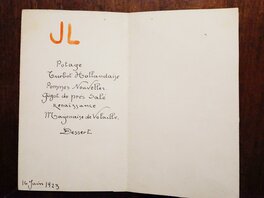 JL
Potage
Turbot Hollandaise
Pommes Nouvelles
Gigot de prés Salé
Renaissance
Mayonaise de Volaille
Dessert
16 Juin 1923